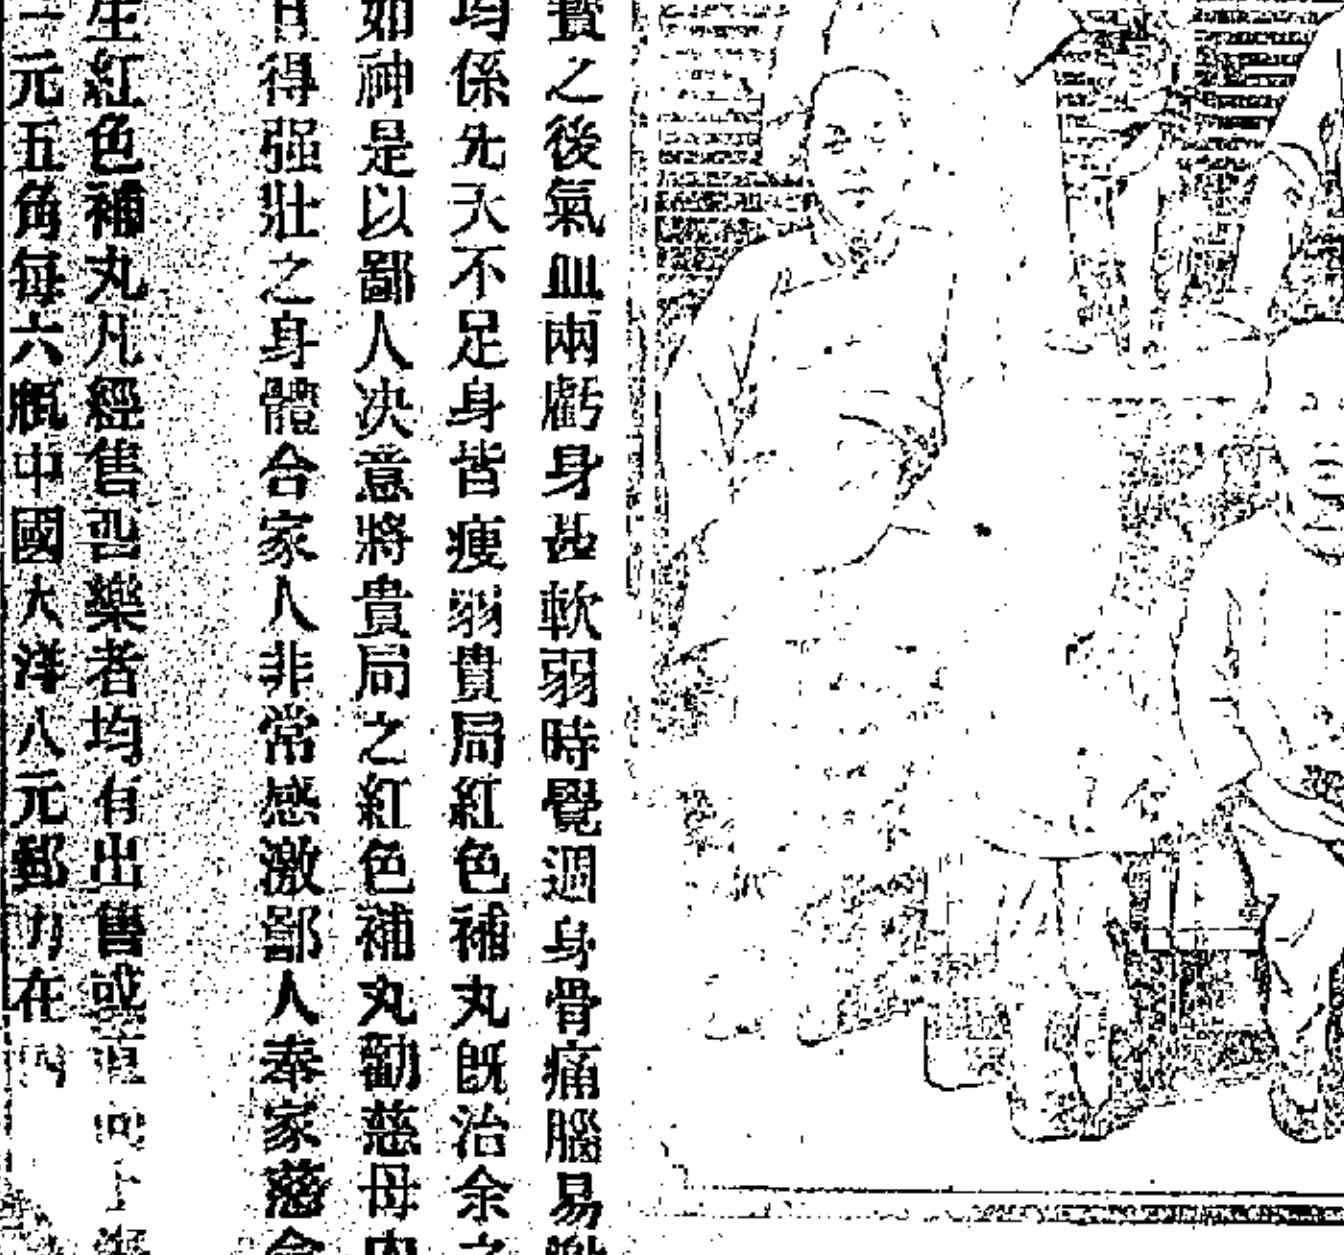 之後氣血兩虧身甚軟弱時覺週身骨痛腦易
均係先天不足身皆瘦弱貴局紅色補丸既治余之
如神是以鄙人决意將貴局之紅色補丸勸慈母內
且得强壯之身體合家人非常感激鄙人奉家慈命
生紅色補丸凡經售西藥者均有出售或直向上海
元五角每六瓶中國大洋八元郵力在內